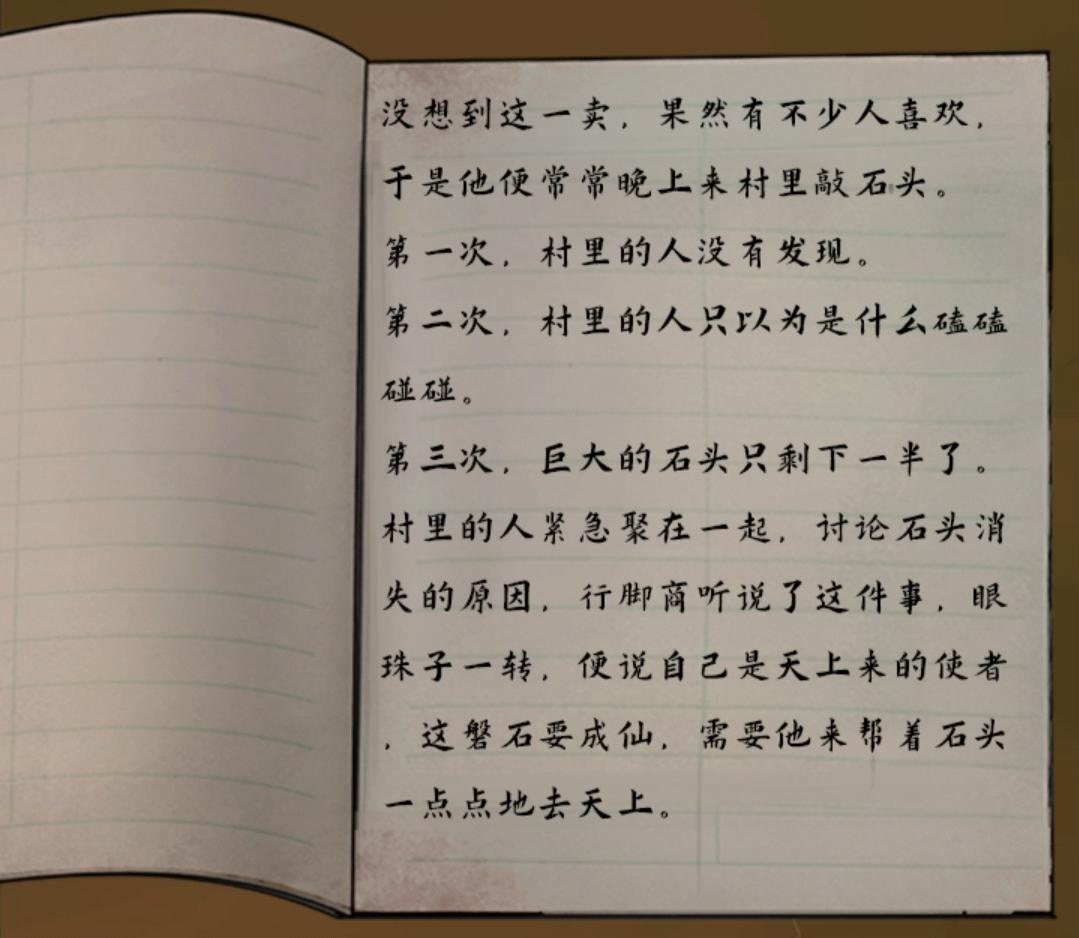 没想到这一卖，果然有不少人喜欢，
于是他便常常晚上来村里敲石头。
第一次，村里的人没有发现。
第二次，村里的人只以为是什么磕磕
碰碰。
第三次，巨大的石头只剩下一半了。
村里的人紧急聚在一起，讨论石头消
失的原因，行脚商听说了这件事，眼
珠子一转，便说自己是天上来的使者
，这磐石要成仙，需要他来帮着石头
一点点地去天上。